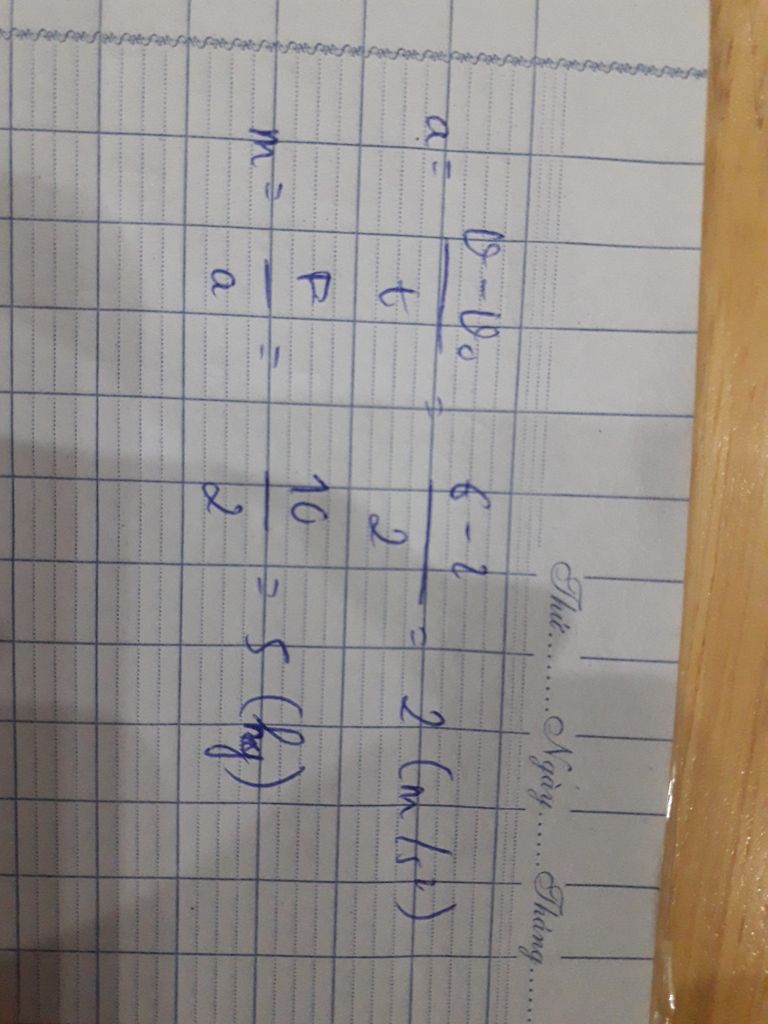 Thứ.........Ngày.......Tháng......
a = \frac{v - v_0}{t} = \frac{6 - 2}{2} = 2 (m/s²)
m = \frac{F}{a} = \frac{10}{2} = 5 (kg)